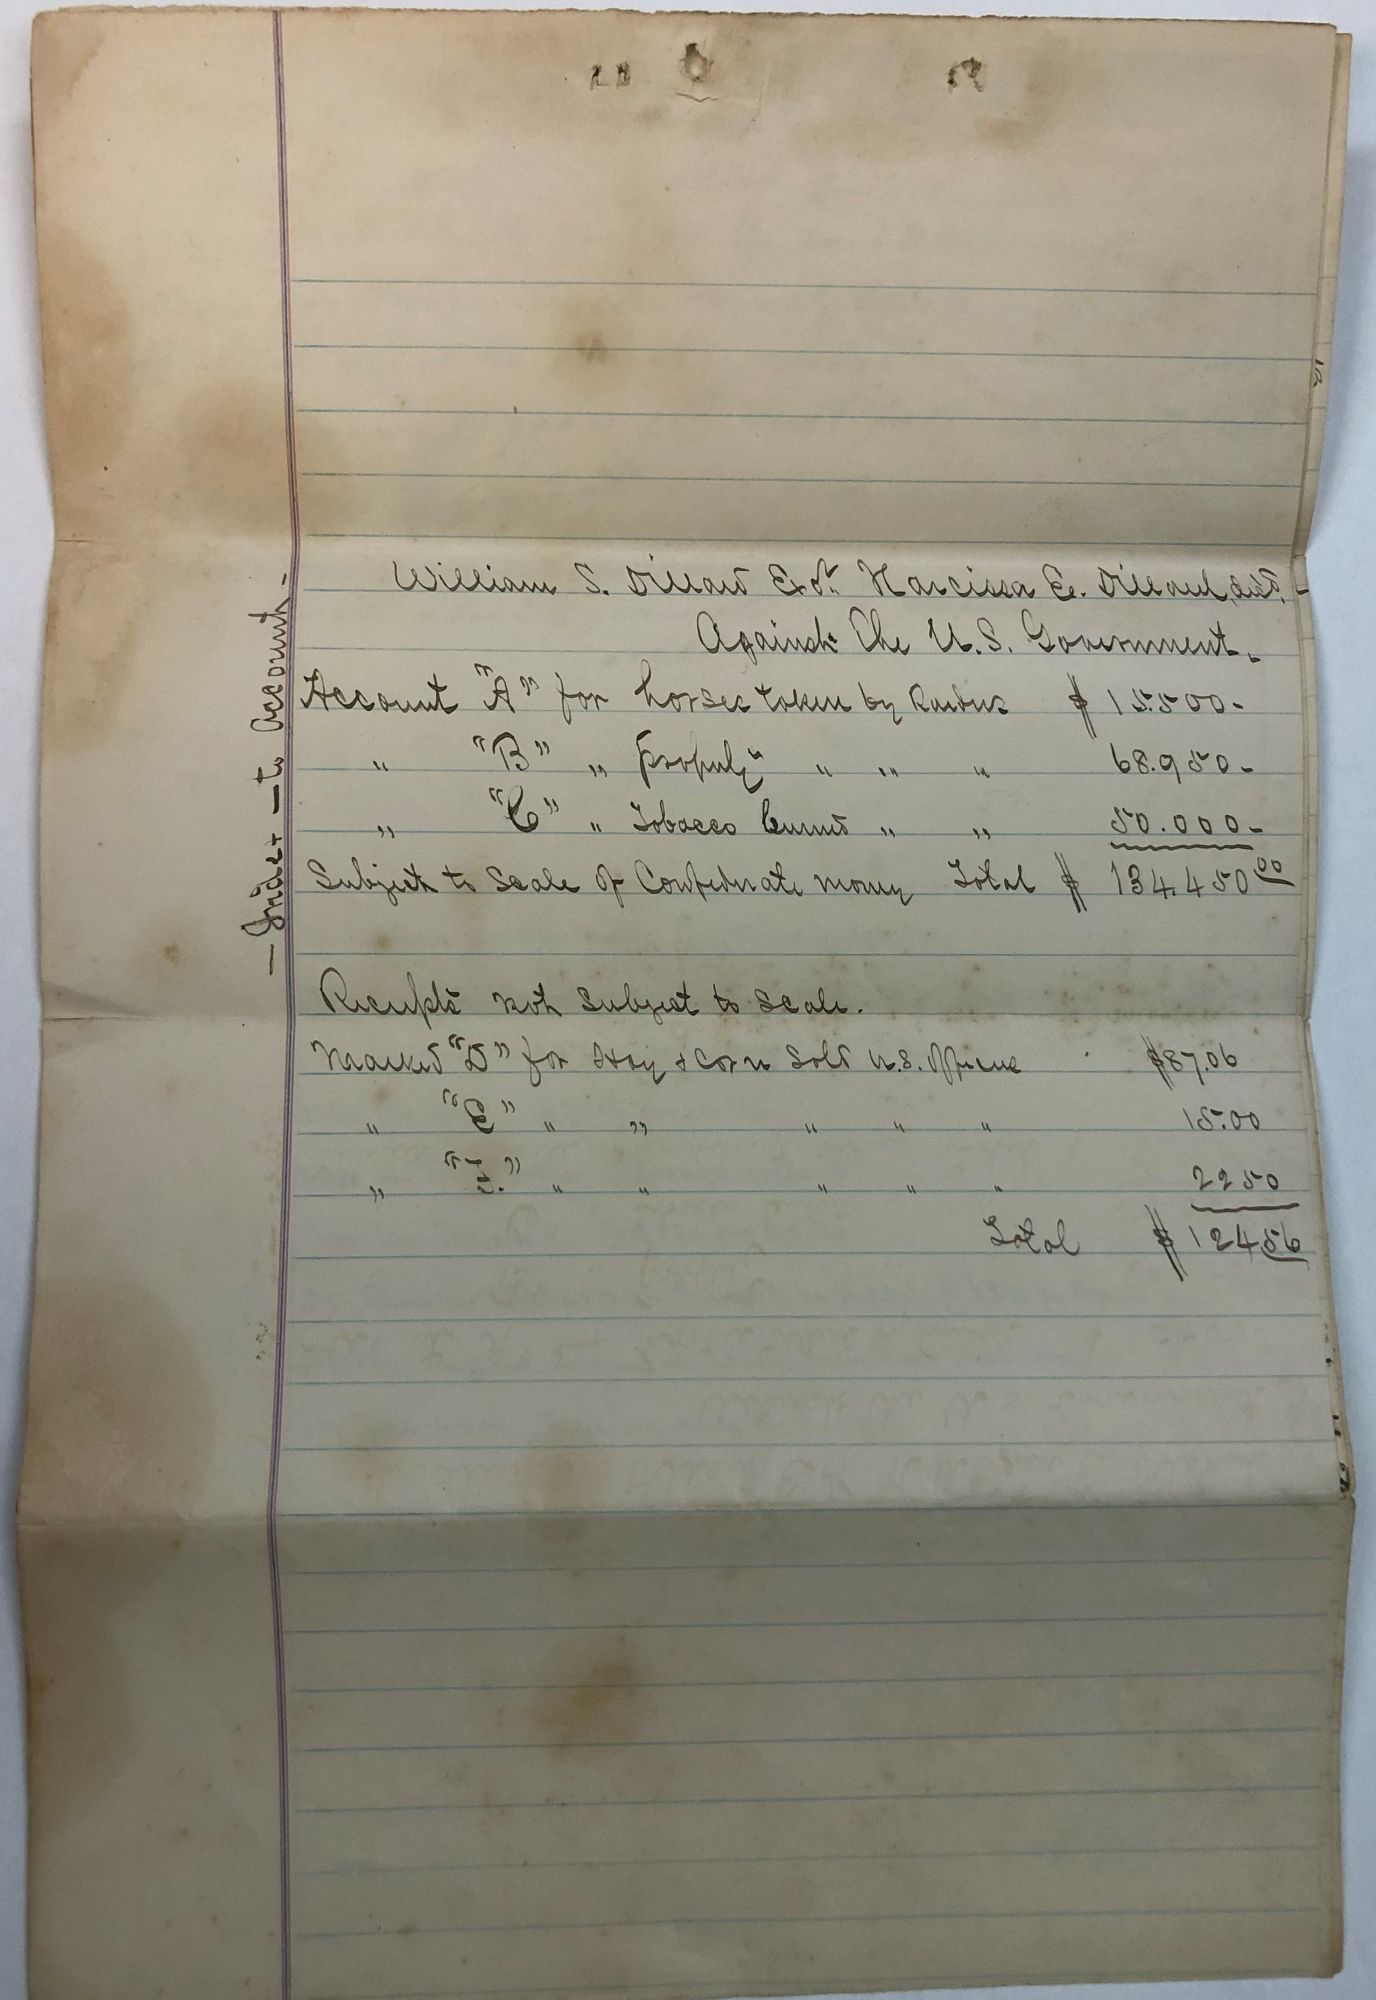 — Index — to Account —
William S. Dillard Exor. Narcissa E. Dillard, decd, -
Against The U.S. Government.
Account "A" for horses taken by Raiders $ 15.500-
" "B" " property " " " 68.950-
" "C" " Tobacco burned " " 50.000-
Subject to Scale of Confederate money Total $ 134.450 00
Receipts not Subject to Scale.
Marked "D" for Hay & Corn Sold U.S. Officers $87.06
" "E" " " " " " 15.00
" " " " " " " 22 50
Total $ 124.56